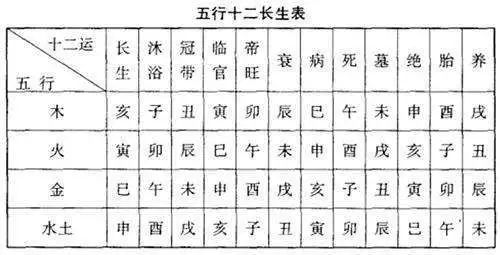 五行十二长生表
十二运 长生 沐浴 冠带 临官 帝旺 衰 病 死 墓 绝 胎 养
五行
木 亥 子 丑 寅 卯 辰 巳 午 未 申 酉 戌
火 寅 卯 辰 巳 午 未 申 酉 戌 亥 子 丑
金 巳 午 未 申 酉 戌 亥 子 丑 寅 卯 辰
水土 申 酉 戌 亥 子 丑 寅 卯 辰 巳 午 未